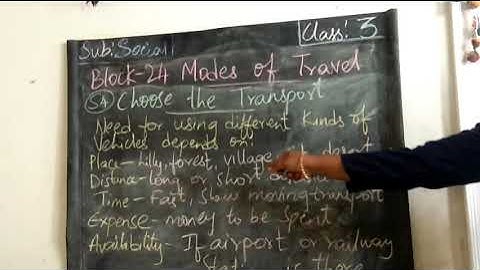 Sub: Social
Class: 3
Block-24 Modes of Travel
S4 Choose the Transport
Need for using different kinds of
Vehicles depends on:
Place - hilly, forest, village, desert
Distance - long or short
Time - Fast, slow moving transport
Expense - money to be spent
Availability - If airport or railway
is there